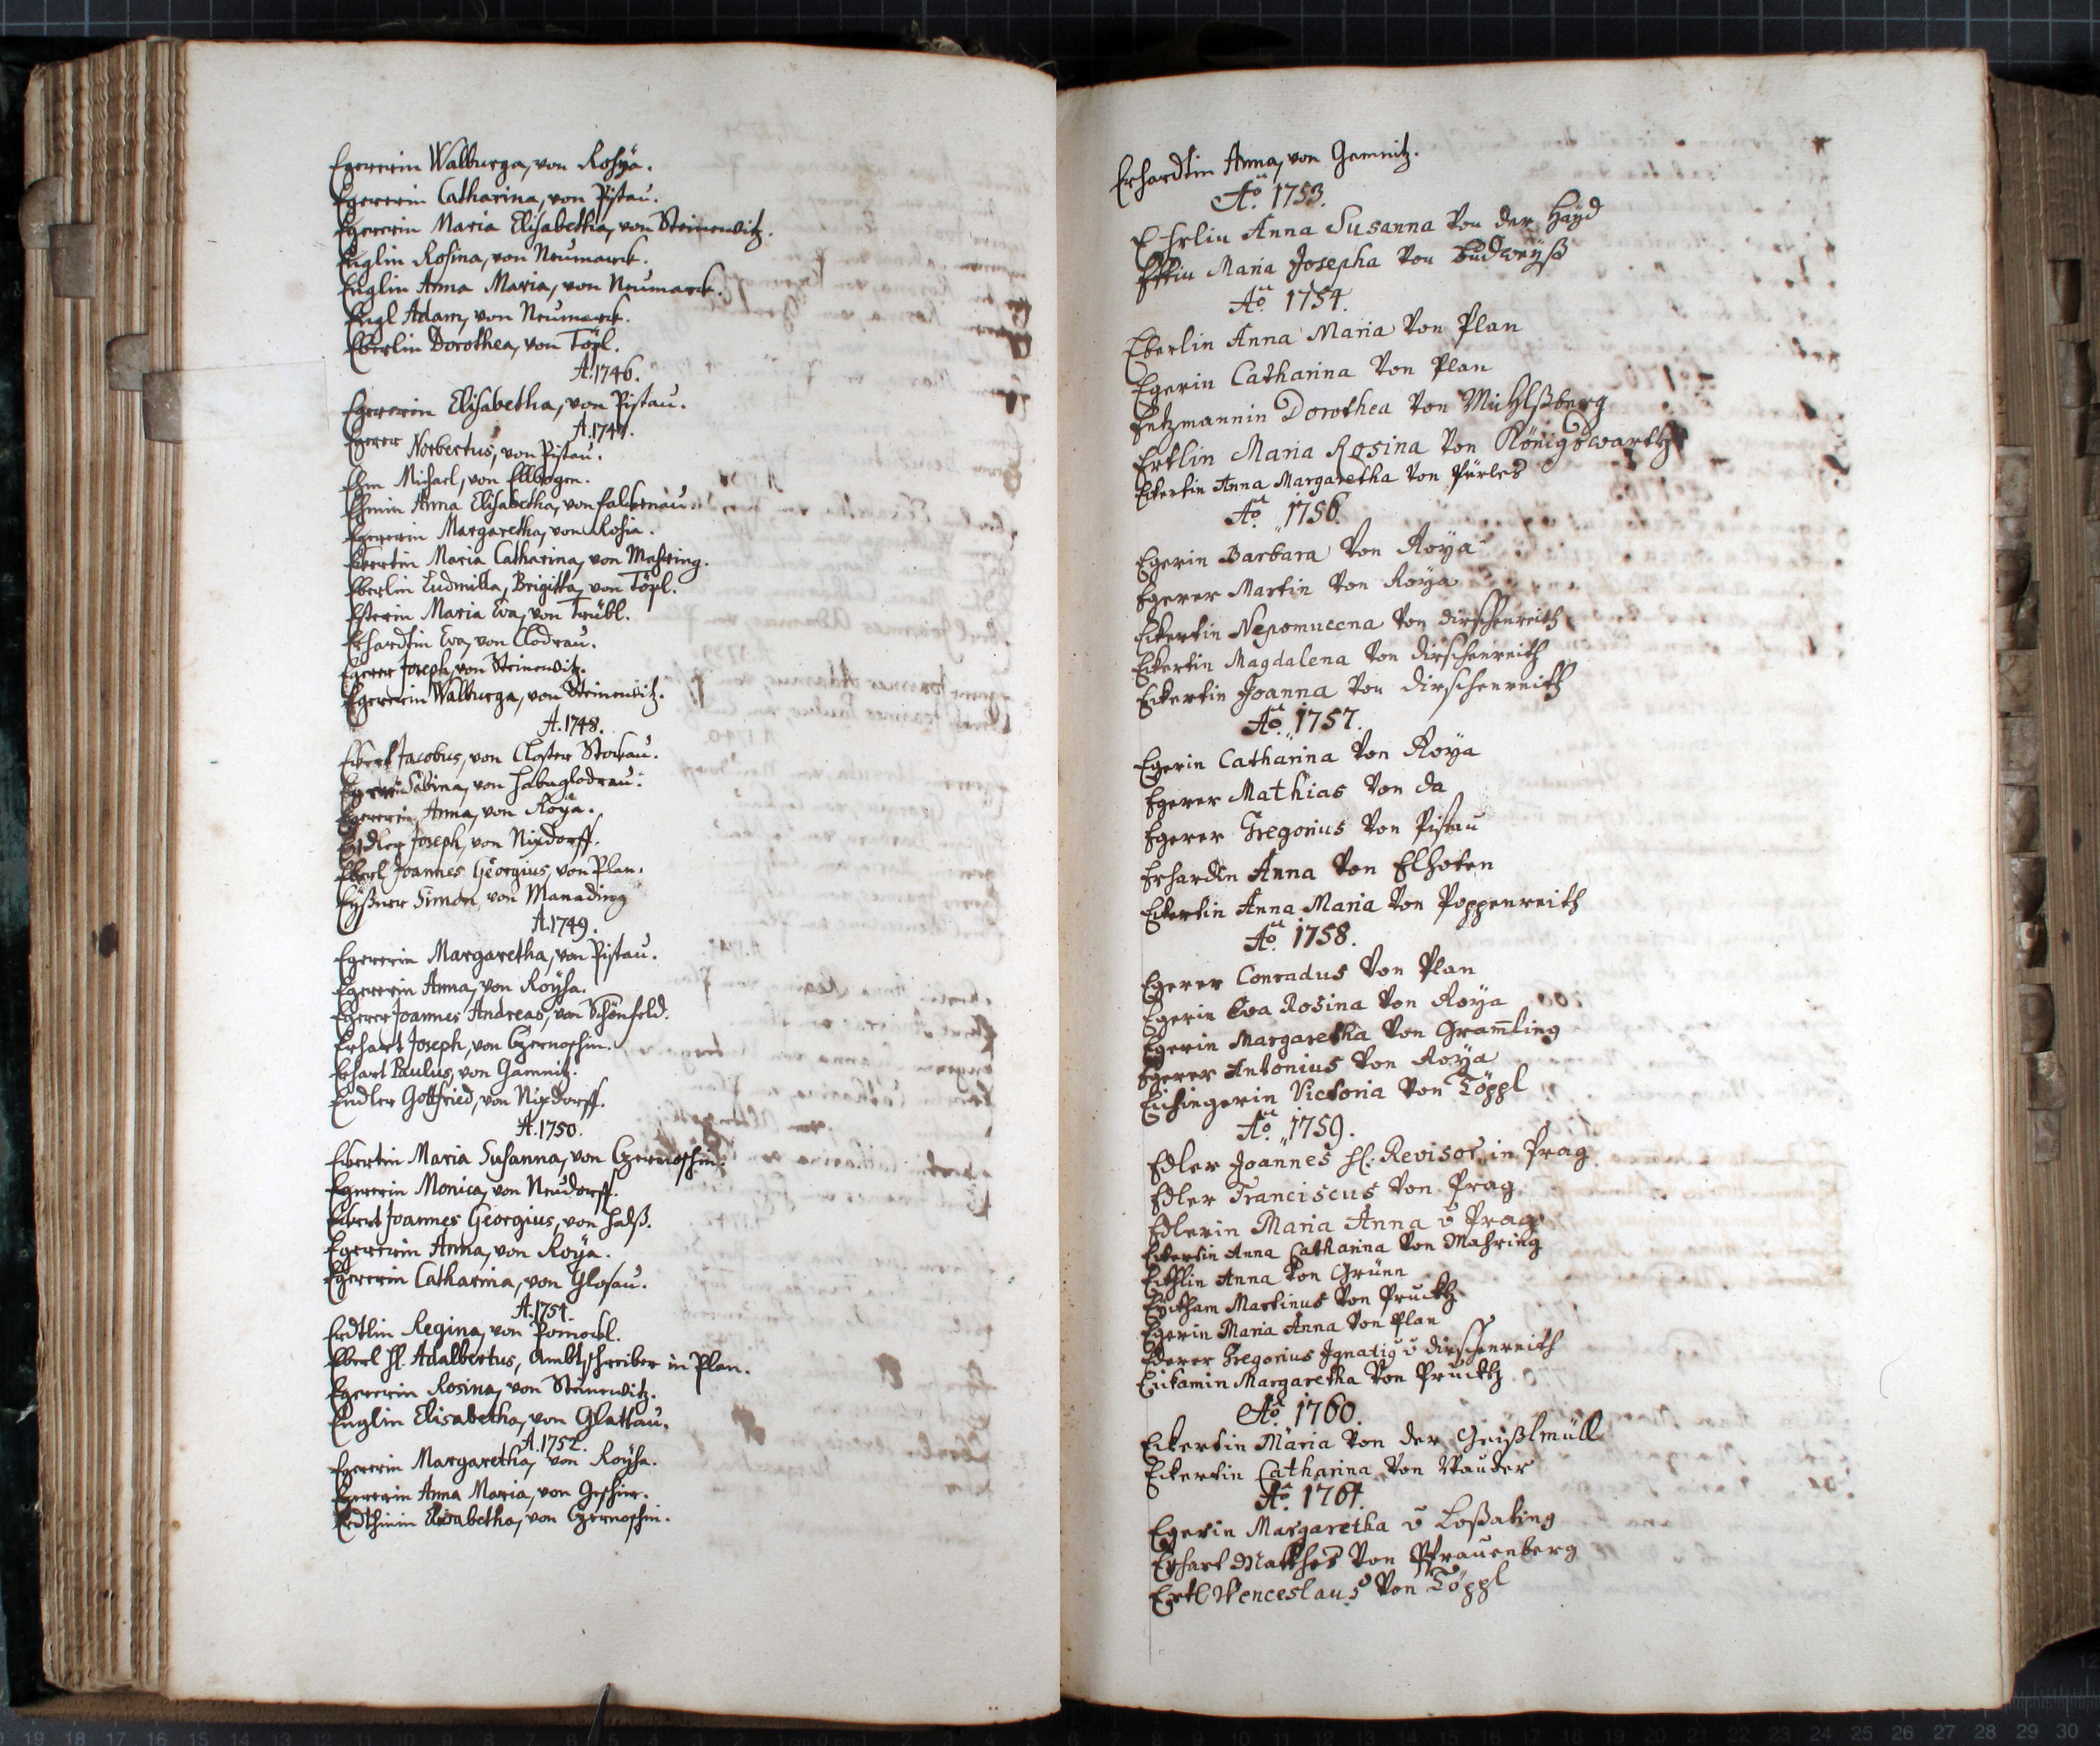 Egererin Walburga, von Rohÿa.
Egererin Catharina, von Pistau.
Egererin Maria Elisabetha, von Steinewitz.
Englin Rosina, von Neumarck.
Englin Anna Maria, von Neumarck.
Engl Adam, von Neumarck.
Eberlin Dorothea, von Töpl.
A. 1746.
Egererin Elisabetha, von Pistau.
A. 1747.
Egerer Norbertus, von Pistau.
Ehm Michael, von Ellbogen.
Ehmin Anna Elisabetha, von Falckenau.
Egererin Margaretha, von Rohia.
Eckertin Maria Catharina, von Mahring.
Eberlin Ludmilla, Brigitta, von Töpl.
Esterin Maria Eva, von Trübl.
Erhardtin Eva, von Clodrau.
Egerer Joseph, von Steinewitz.
Egererin Walburga, von Steinewitz.
A. 1748.
Eckert Jacobus, von Closter Stockau.
Sabina, von Habaglodrau.
Egererin, Anna, von Roÿa.
Endler Joseph, von Nixdorff.
Eberl Joannes Georgius, von Plan.
Eÿßner Simon, von Manading
A. 1749.
Egererin Margaretha, von Pistau.
Egererin Anna, von Roÿha.
Egerer Joannes Andreas, von Schönfeld.
Erhart Joseph, von Czernoschin.
Erhart Paulus, von Gamnitz.
Endler Gottfried, von Nixdorff.
A. 1750.
Eckertin Maria Susanna, von Czernoschin.
Egererin Monica, von Neudorff.
Eckert Joannes Georgius, von Halß.
Egererin Anna, von Roÿa.
Egererin Catharina, von Glosau.
A. 1751.
Erdtlin Regina, von
Eberl H. Adalbertus, Ambtschreiber in Plan.
Egererin Rosina, von Steinewitz.
Englin Elisabetha, von Glattau.
A. 1752.
Egererin Margaretha, von Roÿha.
Egererin Anna Maria, von
Elisabetha, von Czernoschin.
Erhardtin Anna, von Gamnitz.
Ao. 1753.
Ehrlin Anna Susanna Von der Haÿd
Maria Josepha Von Budweÿß
Ao. 1754.
Eberlin Anna Maria Von Plan
Egerin Catharina Von Plan
Etzmannin Dorothea Von Mühlßberg
Ertlin Maria Rosina Von Königswarth
Eckertin Anna Margaretha Von Pürles
Ao. 1756.
Egerin Barbara Von Roÿa
Egerer Martin Von Roÿa
Eckertin Nepomucena Von dirschenreith
Eckertin Magdalena Von dirschenreith
Eckertin Joanna Von dirschenreith
Ao. 1757.
Egerin Catharina Von Roÿa
Egerer Mathias Von da
Egerer Gregorius Von Pistau
Erhardin Anna Von Elhoten
Eckertin Anna Maria Von Poppenreith
Ao. 1758.
Egerer Conradus Von Plan
Egerin Eva Rosina Von Roÿa
Egerin Margaretha Von Gram̄ling
Egerer Antonius Von Roÿa
Eichingerin Victoria Von Töppl
Ao. 1759.
Edler Joannes H: Revisor in Prag
Edler Franciscus Von Prag
Edlerin Maria Anna v Prag
Eckertin Anna Catharina Von Mahring
Anna Von Grünn
Martinus Von Pruckh
Egerin Maria Anna Von Plan
Ederer Gregorius Ignatiq v dirschenreith
Margaretha Von Pruckh
Ao. 1760.
Eckertin Maria Von der Geißlmüll
Eckertin Catharina Von Wauder
Ao. 1761.
Egerin Margaretha v Loßating
Erhart Matthes Von Pfrauenberg
Ertl Wenceslaus Von Töppl